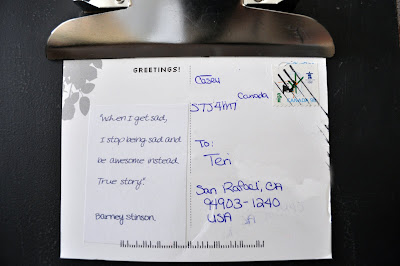 GREETINGS!
"When I get sad,
I stop being sad and
be awesome instead.
True story."
Barney Stinson.
Casey
Canada
S7J4M7
To:
Teri
San Rafael, CA
94903-1240
USA
CANADA